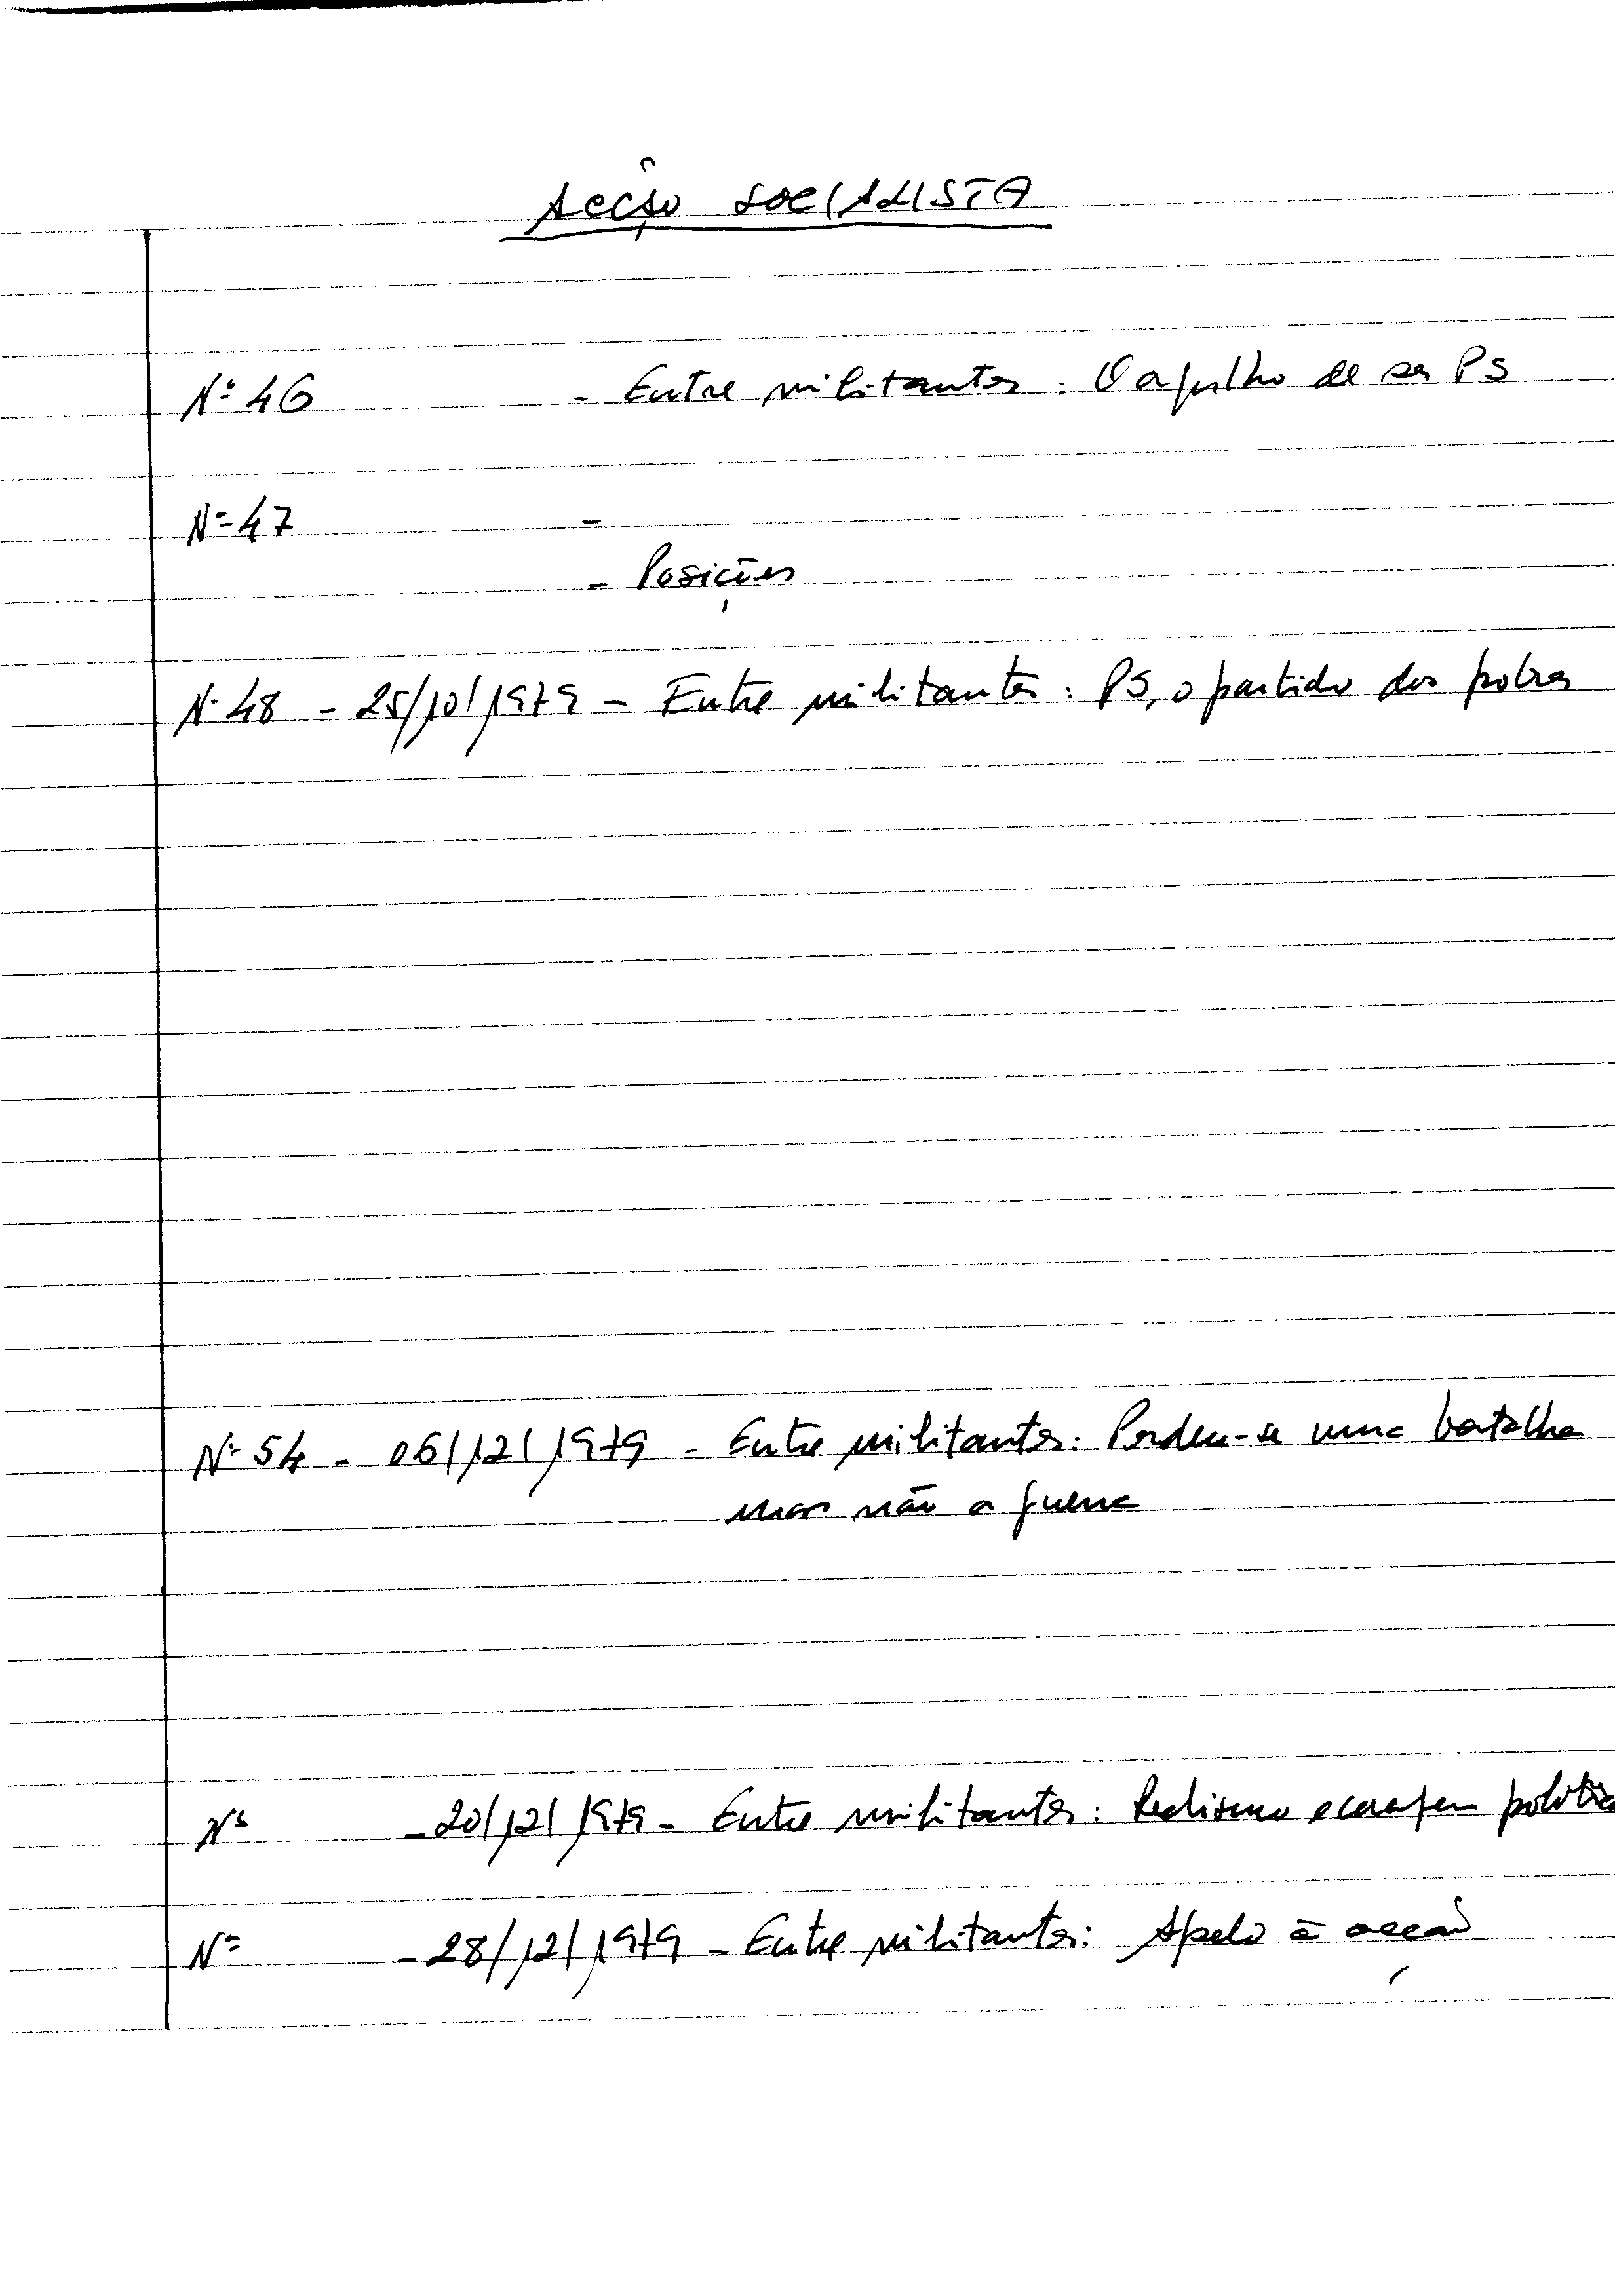 ACÇÃO SOCIALISTA
Nº 46 - Entre militantes: O orgulho de ser PS
Nº 47 -
- Posições
Nº 48 - 25/10/1979 - Entre militantes: PS, o partido dos pobres
Nº 54 - 06/12/1979 - Entre militantes: Perdeu-se uma batalha
mas não a guerra
Nº - 20/12/1979 - Entre militantes: Realismo e coragem política
Nº - 28/12/1979 - Entre militantes: Apelo à acção